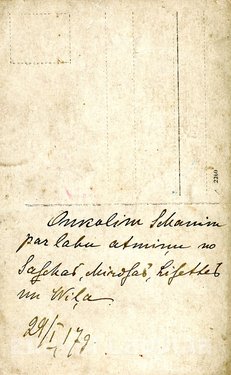 2260
Onkolim Schanim
par labu atmiņu no
Saschas, Mirdsas, Lisettes
un Wiļa.
29/I 17 g.